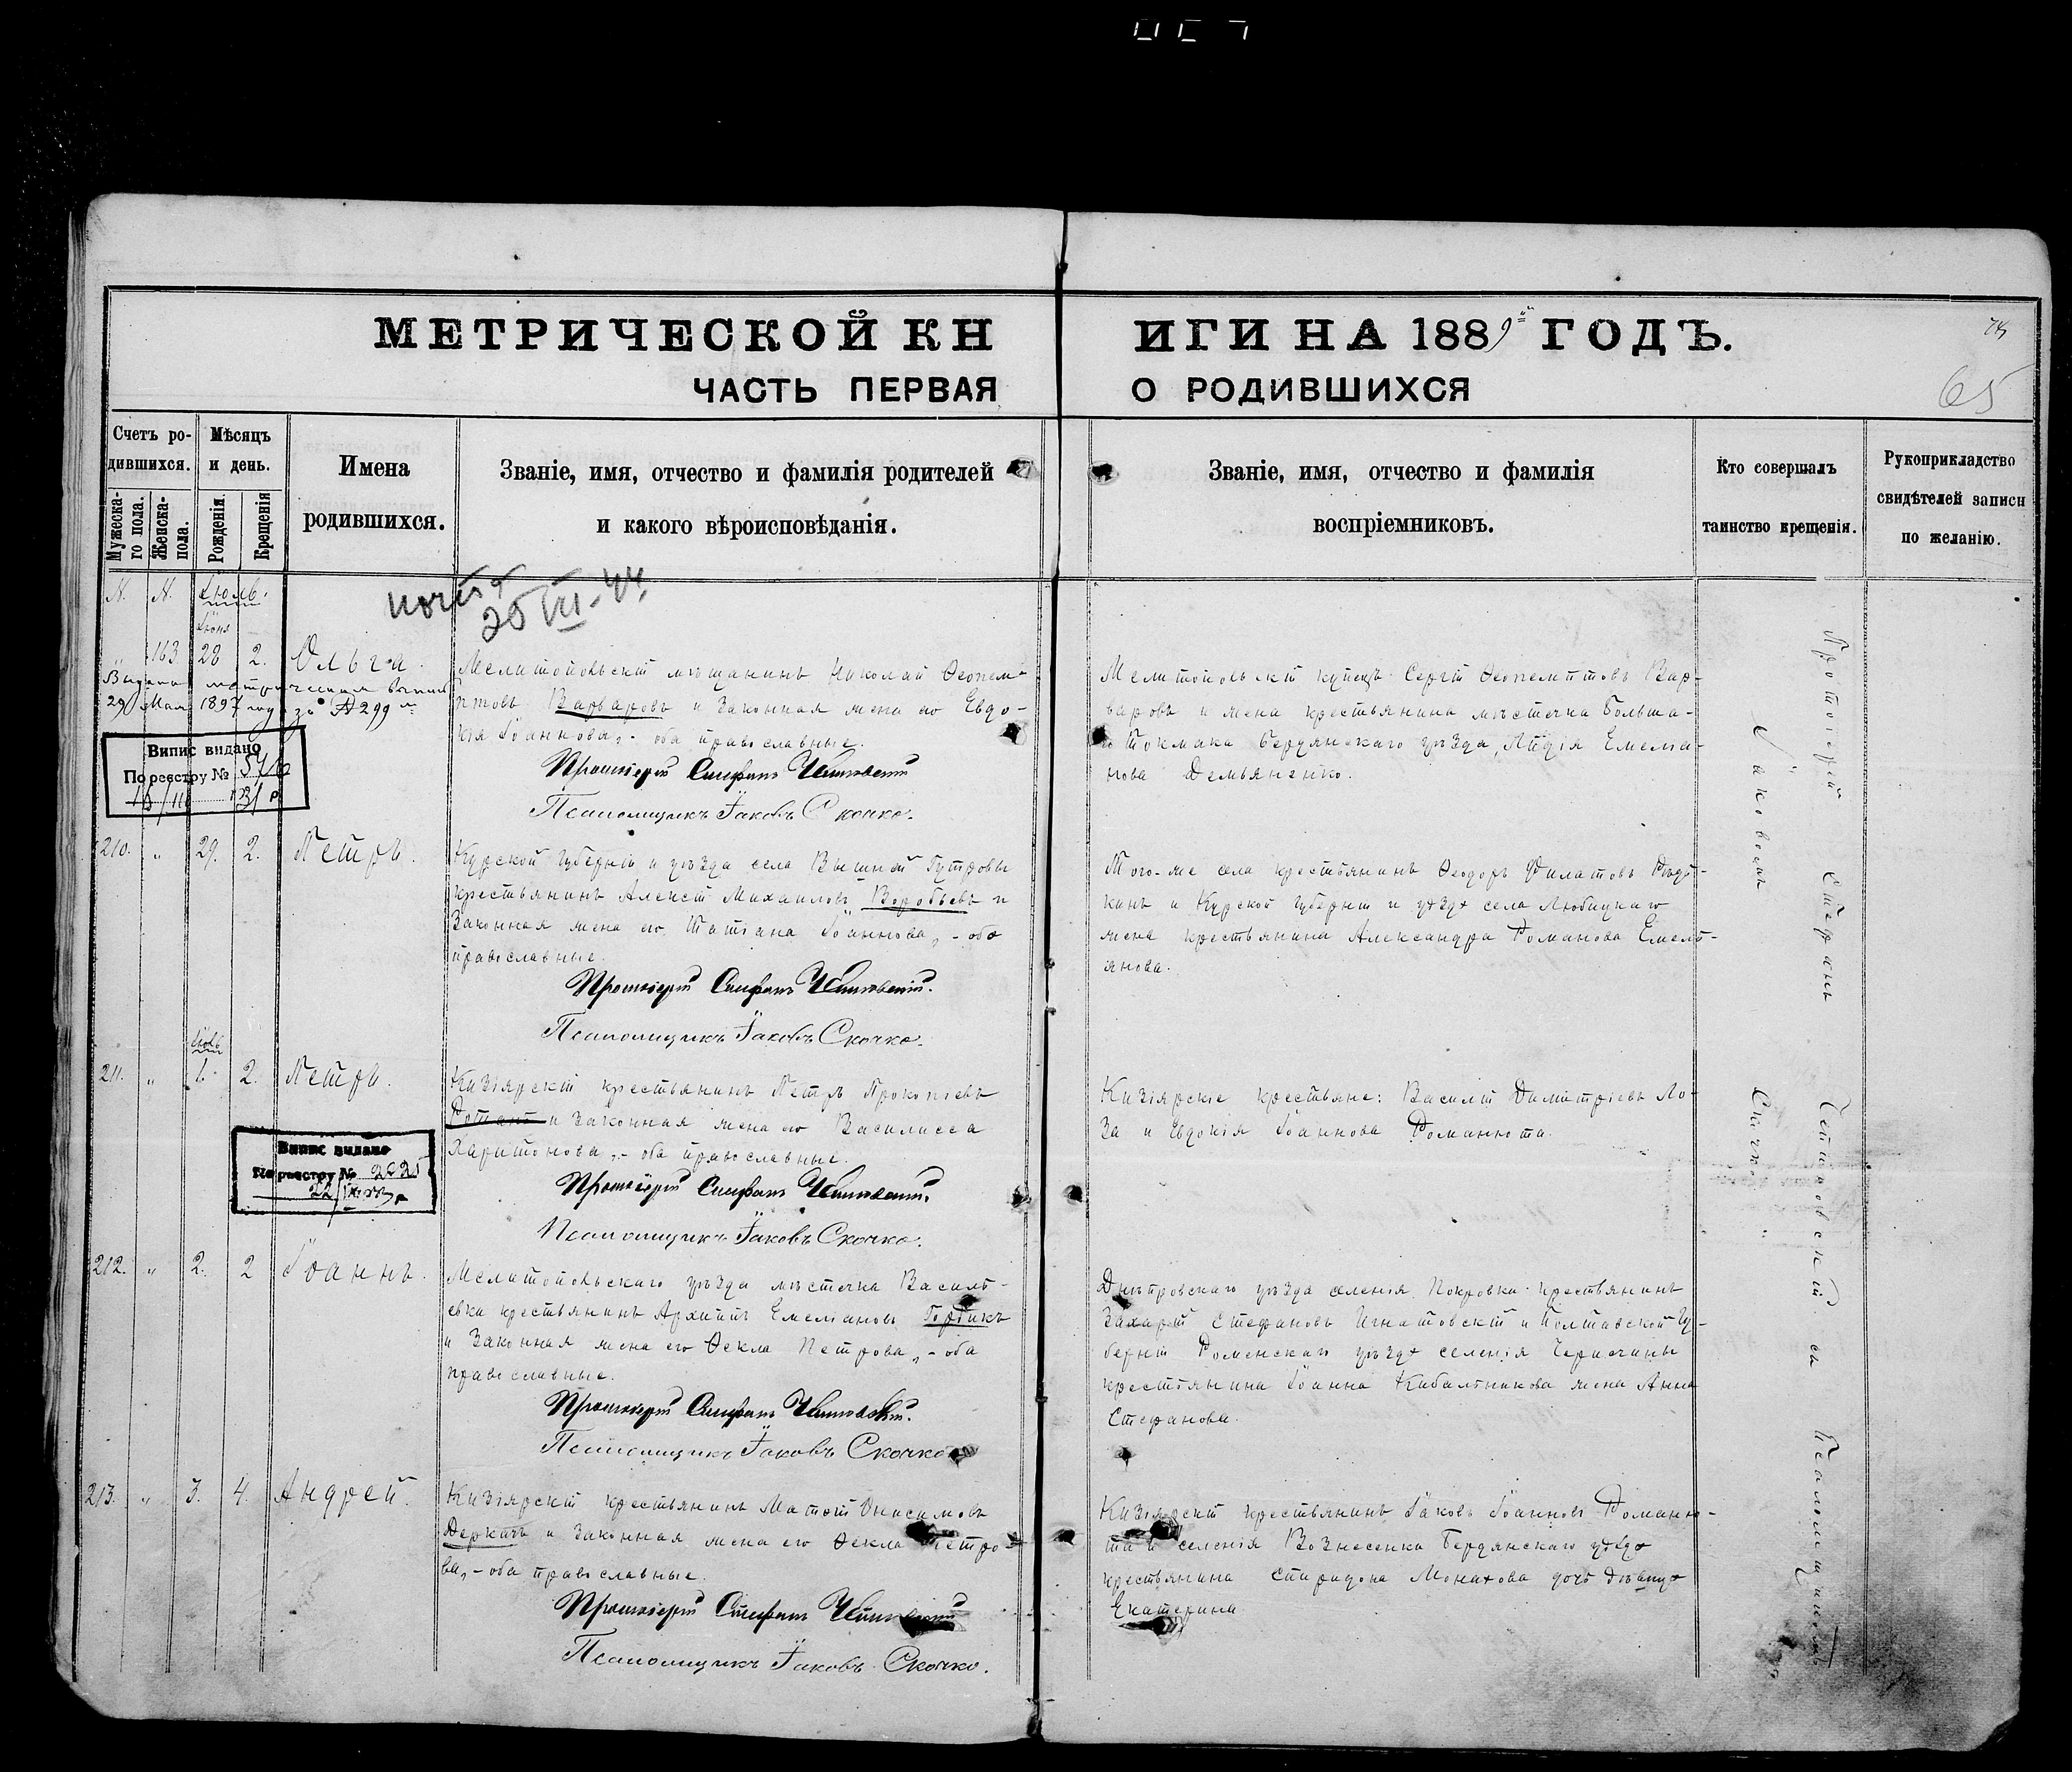 МЕТРИЧЕСКОЙ КНИГИ НА 1889й ГОДЪ.
ЧАСТЬ ПЕРВАЯ О РОДИВШИХСЯ
65
Счетъ родившихся.
Мужескаго пола.
Женска- пола.
Мѣсяцъ и день.
Рожденія.
Крещенія
Имена родившихся.
Званіе, имя, отчество и фамилія родителей
и какого вѣроисповѣданія.
Званіе, имя, отчество и фамилія
воспріемниковъ.
Кто совершалъ
таинство крещенія.
Рукоприкладство
свидѣтелей записи
по желанію.
Іюль.
Іюня
163 28 2. Ольга.
Мелитопольскій мѣщанинъ Николай Ѳеопем-
птовъ Варваровъ и законная жена его Евдо-
кія Іоаннова, - оба православные.
Протоіерей Стефанъ
Псаломщикъ Іаковъ Скочко.
Мелитопольскій купецъ Сергій Ѳеопемптовъ Вар-
варовъ и жена крестьянина мѣстечка Больша-
го Токмака Бердянскаго уѣзда, Лидія Емелia-
нова Демьяненко.
29 Мая 1897 году за № 299
Випис видано
По реестру №
210. " 29. 2. Петръ.
Курской губерніи и уѣзда села
крестьянинъ Алексій Михаиловъ Воробьевъ и
законная жена его Татіана Іоаннова, - оба
православные.
Протоіерей Стефанъ
Псаломщикъ Іаковъ Скочко.
Того-же села крестьянинъ Ѳеодоръ Филатовъ
кинъ и Курской губерніи и уѣзда села Любицкаго
жена крестьянина Александра Романова Емель-
янова.
Іюль
211. " 1. 2. Петръ.
Кизіярскій крестьянинъ Петръ Прокопіевъ
Ротань и законная жена его Василисса
Харитонова, - оба православные.
Протоіерей Стефанъ
Псаломщикъ Іаковъ Скочко.
Кизіярскіе крестьяне: Василій Димитріевъ Ло-
за и Евдокія Іоаннова Романюта.
Випис видано
По реестру №
212. " 2. 2 Іоаннъ.
Мелитопольскаго уѣзда мѣстечка Василь-
евки крестьянинъ Архиппъ Емеліановъ
и законная жена его Ѳекла Петрова, - оба
православные.
Протоіерей Стефанъ
Псаломщикъ Іаковъ Скочко
Днѣпровскаго уѣзда селенія Покровки крестьянинъ
Захарій Стефановъ Игнатовскій и Полтавской гу-
берніи Роменскаго уѣзда селенія
крестьянина Іоанна Кибальникова жена Анна
Стефанова.
213. " 3. 4. Андрей.
Кизіярскій крестьянинъ Матѳій Онисимовъ
Деркачъ и законная жена его Ѳекла Петро-
ва, - оба православные.
Протоіерей Стефанъ
Псаломщикъ Іаковъ Скочко.
Кизіярскій крестьянинъ Іаковъ Іоанновъ Романю-
та и селенія Вознесенка Бердянскаго уѣзда
крестьянина Спиридона Монахова дочь дѣвица
Екатерина
Протоіерей Стефанъ съ Псаломщикомъ
Іаковомъ Скочко.